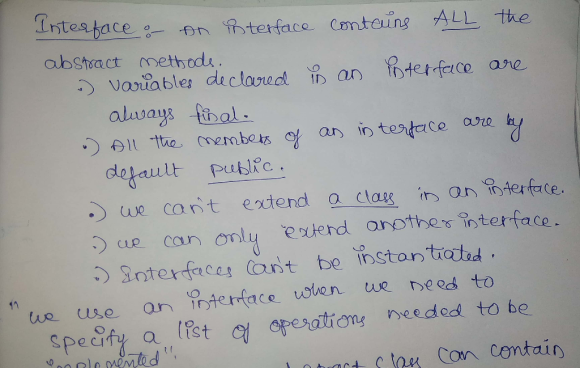 Interface :- An interface contains ALL the
abstract methods.
•) Variables declared in an interface are
always final.
•) All the members of an interface are by
default public.
•) we can't extend a class in an interface.
•) we can only extend another interface.
•) Interfaces can't be instantiated.
"we use an interface when we need to
specify a list of operations needed to be
implemented".
class can contain